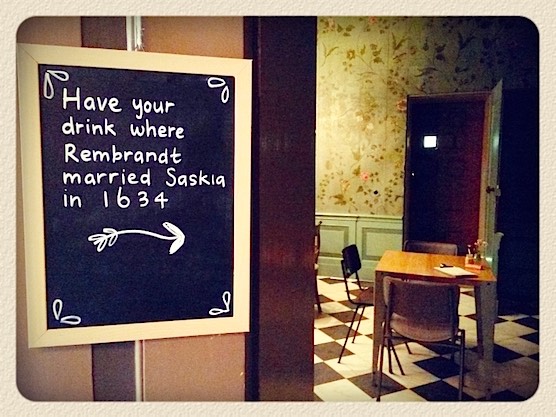 Have your
drink where
Rembrandt
married Saskia
in 1634